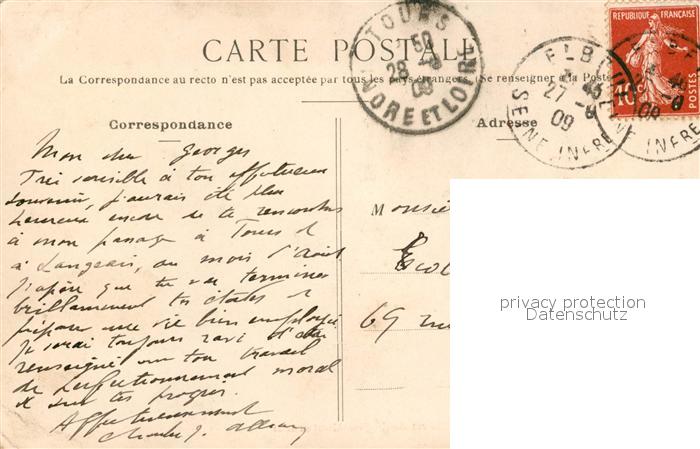 CARTE POSTALE
La Correspondance au recto n'est pas acceptée par tous les pays étrangers. (Se renseigner à la Poste
TOURS
28
09
INDRE ET LOIRE
ELB
27
09
SEINE INFRE
RÉPUBLIQUE FRANÇAISE
10c
POSTES
Correspondance
Mon cher Georges
Très sensible à ton affectueux
souvenir, j'aurais été plus
heureux encore de te rencontrer
à mon passage à Tours et
à Langeais, au mois d'Août
J'espère que tu vas terminer
brillamment tes études et
préparer une vie bien employée
Je serai toujours ravi d'être
renseigné sur ton travail
de perfectionnement moral
et sur tes progrès.
Affectueusement
Charles J.
Adresse
Monsie
Ecol
69 rue
privacy protection
Datenschutz